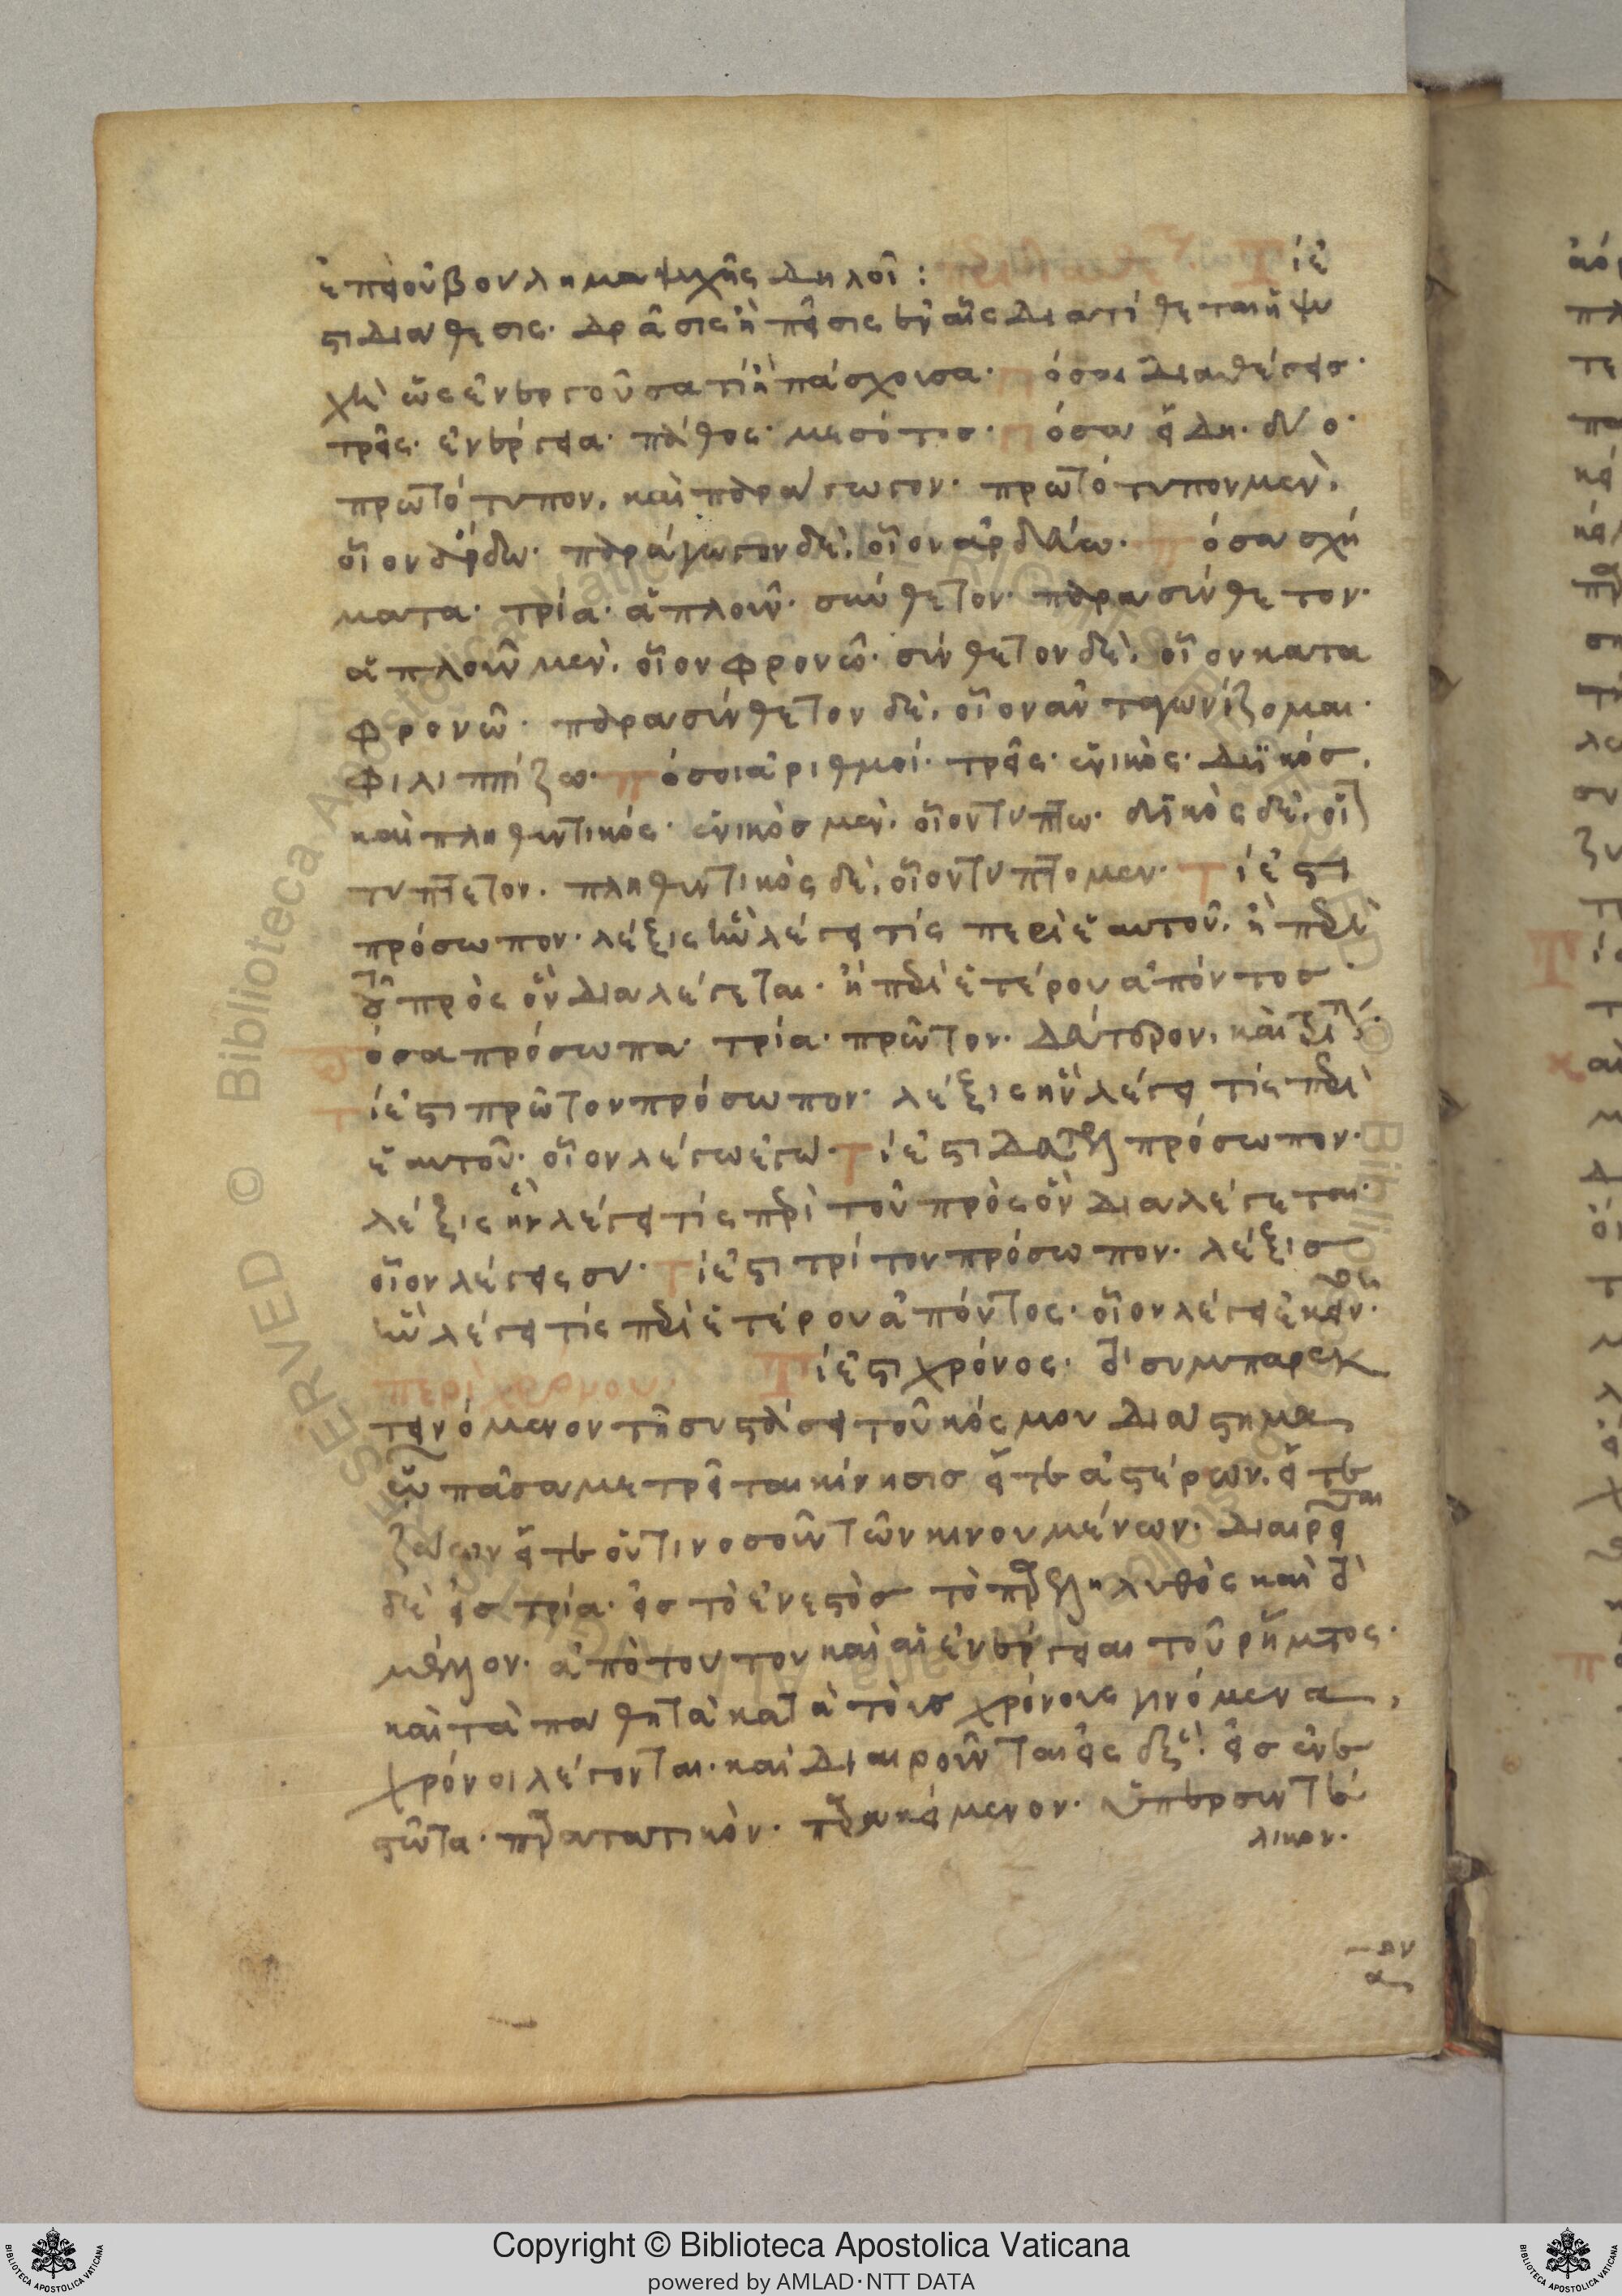 ἐπεὶ οὐ βούλημα ψυχῆς δηλοῖ: Τί ἐ
στι διάθεσις· δρᾶσις ἢ πεῖσις ἐν αἷς διατίθεται ἡ ψυ
χὴ ὡς ἐνεργοῦσα τί ἢ πάσχουσα· πόσαι διαθέσεις·
τρεῖς· ἐνέργεια· πάθος· μεσότης· πόσα εἴδη· δύο·
πρωτότυπον, καὶ παράγωγον· πρωτότυπον μὲν,
οἷον ἄρδω· παράγωγον δὲ, οἷον ἀρδεύω· πόσα σχή
ματα· τρία· ἁπλοῦν· σύνθετον· παρασύνθετον·
ἁπλοῦν μὲν, οἷον φρονῶ· σύνθετον δὲ, οἷον κατα
φρονῶ· παρασύνθετον δὲ, οἷον ἀνταγωνίζομαι·
φιλιππίζω· πόσοι ἀριθμοί· τρεῖς· ἑνικὸς· δυϊκός,
καὶ πληθυντικός· ἑνικὸς μὲν, οἷον τύπτω· δυϊκὸς δὲ, οἷον
τύπτετον· πληθυντικὸς δὲ, οἷον τύπτομεν· Τί ἐστι
πρόσωπον· λέξις ἣν λέγει τίς περὶ ἑαυτοῦ, ἢ περὶ
τοῦ πρὸς ὃν διαλέγεται· ἢ περὶ ἑτέρου ἀπόντος·
πόσα πρόσωπα· τρία· πρῶτον· δεύτερον, καὶ τρίτον·
τί ἐστι πρῶτον πρόσωπον· λέξις ἣν λέγει τίς περὶ
ἑαυτοῦ· οἷον λέγω ἐγώ· Τί ἐστι δεύτερον πρόσωπον·
λέξις ἣν λέγει τίς περὶ τοῦ πρὸς ὃν διαλέγεται·
οἷον λέγεις συ· Τί ἐστι τρίτον πρόσωπον· λέξις
ἣν λέγει τίς περὶ ἑτέρου ἀπόντος· οἷον λέγει ἐκεῖνος·
περὶ χρόνου· Τί ἐστι χρόνος· τὸ συμπαρεκ
τεινόμενον τῇ συστάσει τοῦ κόσμου διάστημα
ἐν ᾧ πᾶσα μετρεῖται κίνησις εἴτε ἀστέρων, εἴτε
ζώων εἴτε οὑτινοσοῦν τῶν κινουμένων· διαιρεῖται
δὲ εἰς τρία· εἰς τὸ ἐνεστὸς τὸ παρεληλυθὸς καὶ τὸ
μέλλον· ἀπὸ τούτου καὶ αἱ ἐνέργειαι τοῦ ῥήματος·
καὶ τὰ παθητὰ κατὰ τοὺς χρόνους γινόμενα,
χρόνοι λέγονται· καὶ διαιροῦνται εἰς ἕξ· εἰς ἐνε
στῶτα· παρατατικὸν· παρακείμενον· ὑπερσυντέ
λικον·